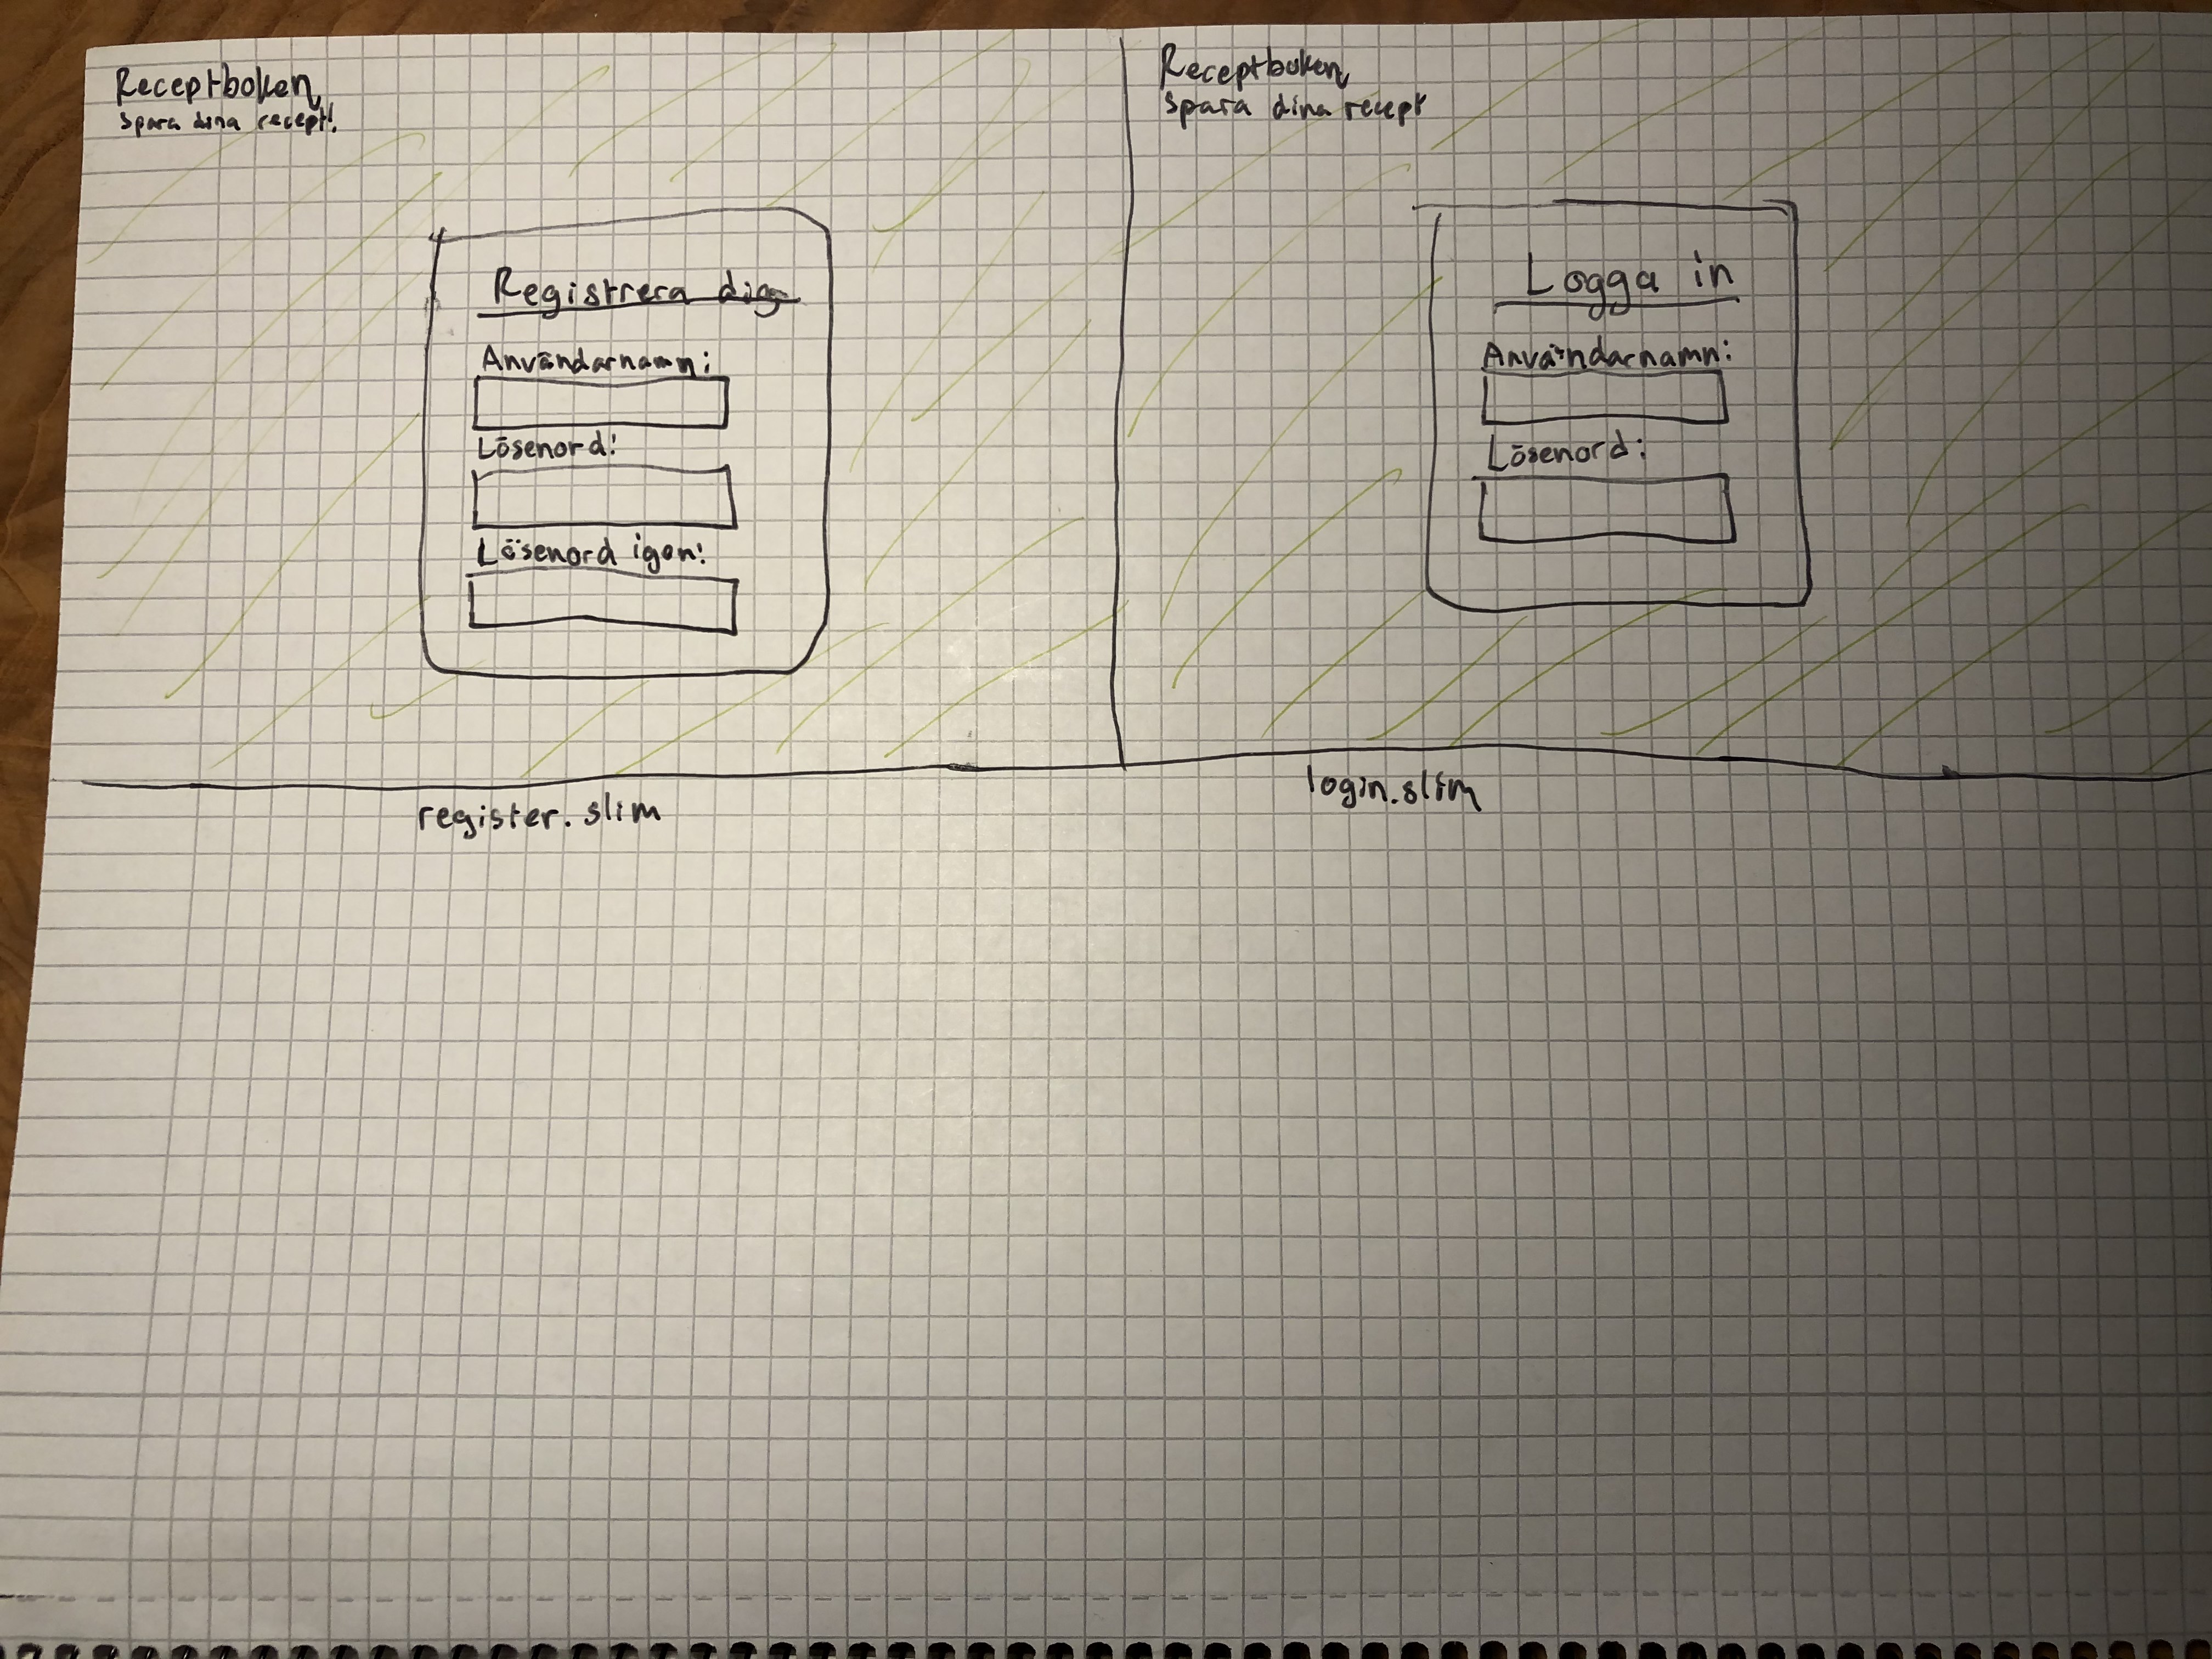 Receptboken,
spara dina recept!
Registrera dig
Användarnamn:
Lösenord:
Lösenord igen:
register.slim
Receptboken,
spara dina recept
Logga in
Användarnamn:
Lösenord:
login.slim